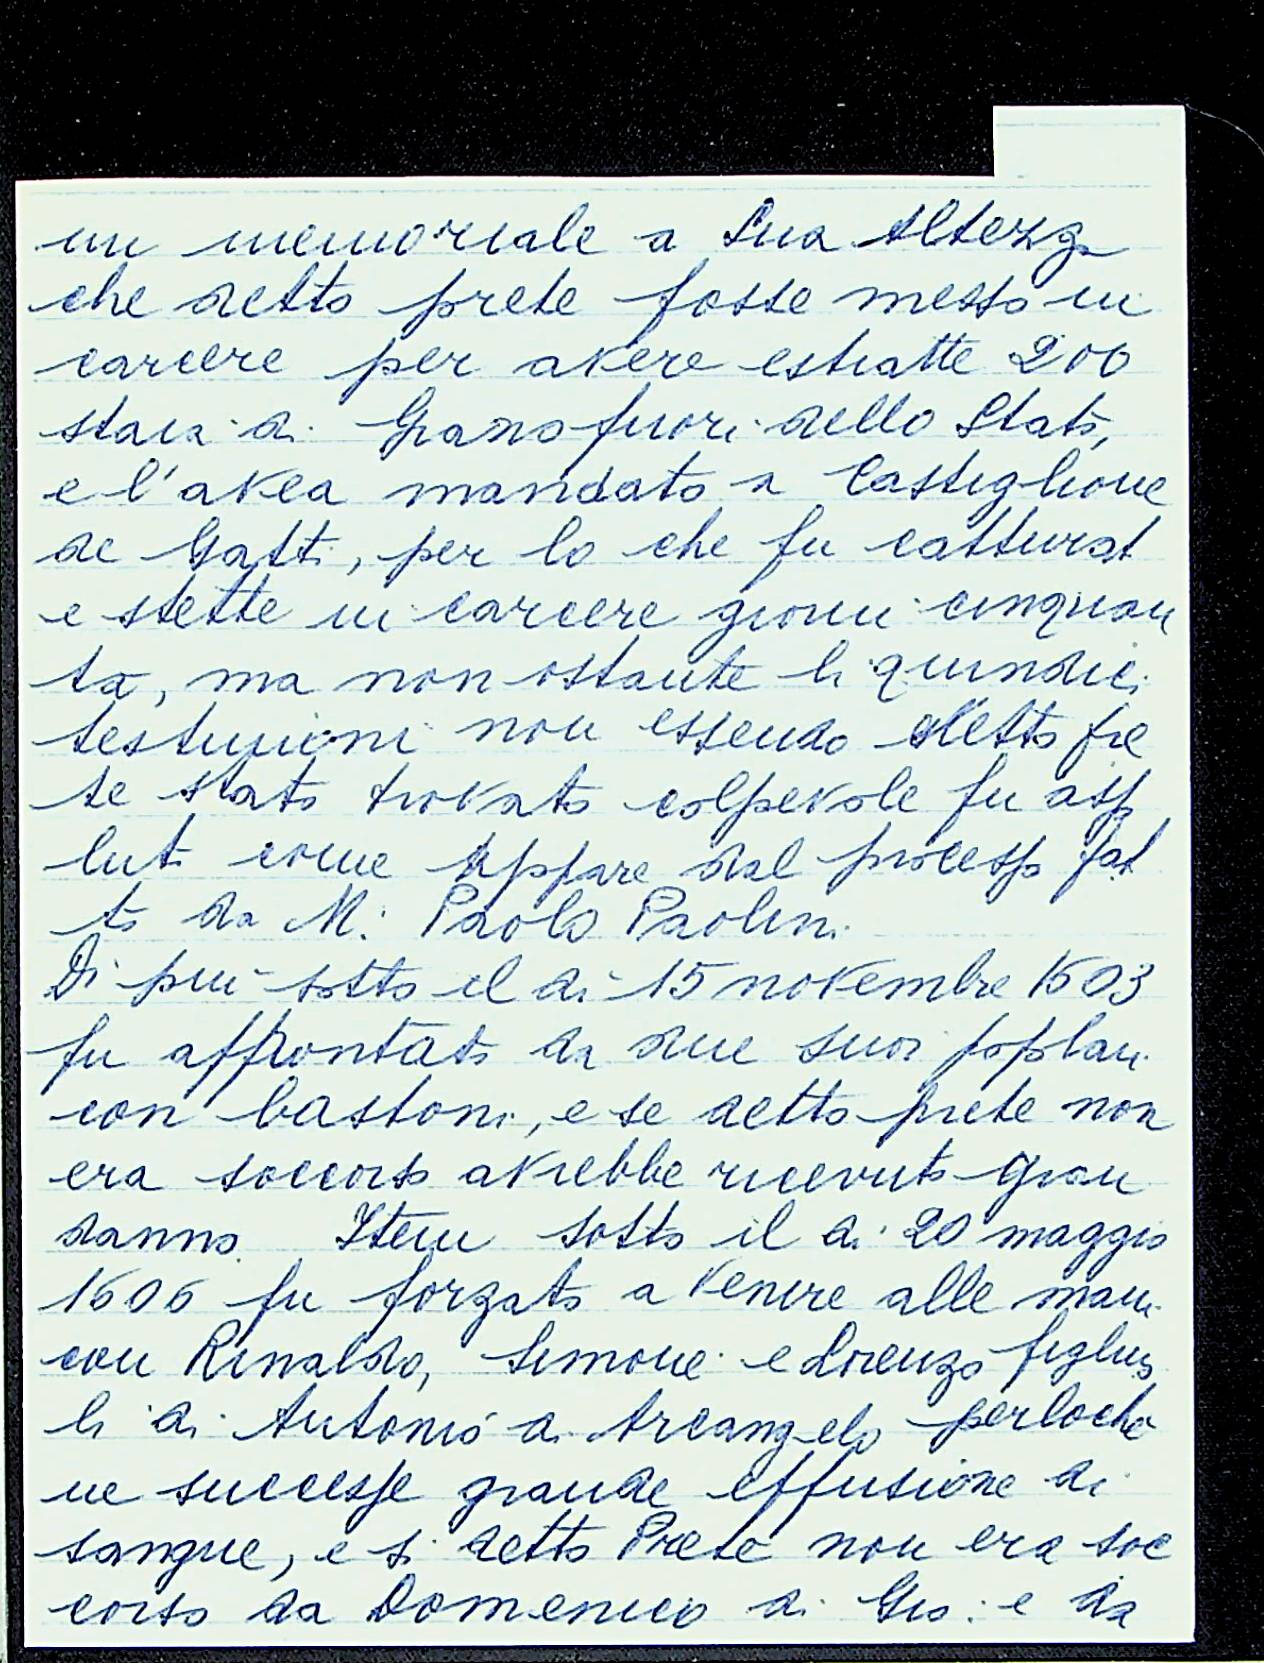 un memoriale a Sua Altezza
che detto prete fosse messo in
carcere per avere estratte 200
staia di Grano fuori dello Stato,
e l'avea mandato a Castiglione
de Gatti, per lo che fu catturat
e stette in carcere giorni cinquan
ta, ma non ostante li quindici
testimoni non essendo detto pre
te stato trovato colpevole fu asso
luto come appare dal processo fat
to da M: Paolo Paolini.
Di più sotto il di 15 novembre 1603
fu affrontato da due suoi popolani
con bastoni, e se detto prete non
era soccorso avrebbe ricevuto gran
danno. Item sotto il di 20 maggio
1606 fu forzato a venire alle mani
con Rinaldo, Simone e Lorenzo figliuo
li di Antonio di Arcangelo perloche
ne successe grande effusione di
sangue, e si detto Prete non era soc
corso da Domenico di Gio: e da